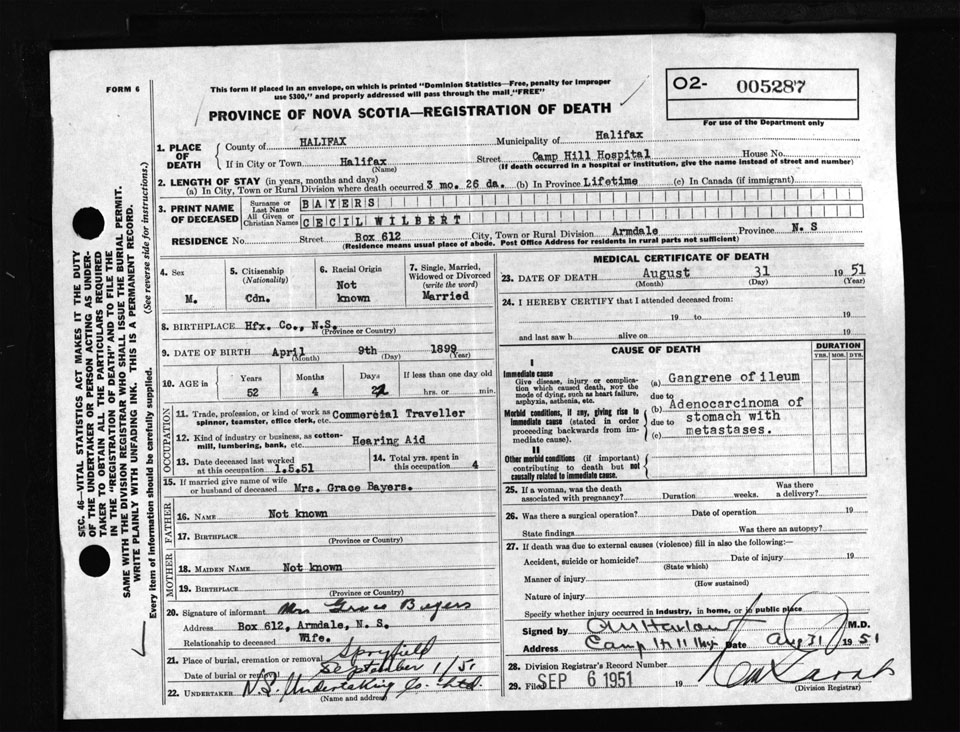 FORM 6
This form if placed in an envelope, on which is printed "Dominion Statistics—Free, penalty for improper
use $300," and properly addressed will pass through the mail "FREE"
PROVINCE OF NOVA SCOTIA—REGISTRATION OF DEATH
O2- 005287
For use of the Department only
SEC. 46—VITAL STATISTICS ACT MAKES IT THE DUTY
OF THE UNDERTAKER OR PERSON ACTING AS UNDER-
TAKER TO OBTAIN ALL THE PARTICULARS REQUIRED
IN THE "REGISTRATION OF DEATH" AND TO FILE THE
SAME WITH THE DIVISION REGISTRAR WHO SHALL ISSUE THE BURIAL PERMIT.
WRITE PLAINLY WITH UNFADING INK. THIS IS A PERMANENT RECORD.
Every item of information should be carefully supplied. (See reverse side for instructions.)
1. PLACE OF DEATH
County of HALIFAX Municipality of Halifax
If in City or Town Halifax Street Camp Hill Hospital House No.
(Name) (If death occurred in a hospital or institution, give the name instead of street and number)
2. LENGTH OF STAY (in years, months and days)
(a) In City, Town or Rural Division where death occurred 3 mo. 26 da. (b) In Province Lifetime (c) In Canada (if immigrant)
3. PRINT NAME OF DECEASED
Surname or Last Name BAYERS
All Given or Christian Names CECIL WILBERT
RESIDENCE No. Street Box 612 City, Town or Rural Division Armdale Province N. S
(Residence means usual place of abode. Post Office Address for residents in rural parts not sufficient)
4. Sex
M.
5. Citizenship (Nationality)
Cdn.
6. Racial Origin
Not known
7. Single, Married, Widowed or Divorced (write the word)
Married
8. BIRTHPLACE Hfx. Co., N.S.
(Province or Country)
9. DATE OF BIRTH April 9th 1899
(Month) (Day) (Year)
10. AGE in Years Months Days If less than one day old
52 4 22 hrs. or min.
OCCUPATION
11. Trade, profession, or kind of work as spinner, teamster, office clerk, etc. Commercial Traveller
12. Kind of industry or business, as cotton-mill, lumbering, bank, etc. Hearing Aid
13. Date deceased last worked at this occupation 1.5.51
14. Total yrs. spent in this occupation 4
15. If married give name of wife or husband of deceased Mrs. Grace Bayers.
FATHER
16. NAME Not known
17. BIRTHPLACE
(Province or Country)
MOTHER
18. MAIDEN NAME Not known
19. BIRTHPLACE
(Province or Country)
20. Signature of informant Mrs Grace Bayers
Address Box 612, Armdale, N. S.
Relationship to deceased Wife.
21. Place of burial, cremation or removal Spryfield
Date of burial or removal September 1/51
22. UNDERTAKER N.S. Undertaking Co. Ltd.
(Name and address)
MEDICAL CERTIFICATE OF DEATH
23. DATE OF DEATH August 31 1951
(Month) (Day) (Year)
24. I HEREBY CERTIFY that I attended deceased from:
19 to 19
and last saw h alive on 19
CAUSE OF DEATH
DURATION
YRS. MOS. DYS.
I
Immediate cause
Give disease, injury or complication which caused death, NOT the mode of dying, such as heart failure, asphyxia, asthenia, etc.
(a) Gangrene of ileum
due to
Morbid conditions, if any, giving rise to immediate cause (stated in order proceeding backwards from immediate cause).
(b) Adenocarcinoma of
due to stomach with
(c) metastases.
II
Other morbid conditions (if important) contributing to death but not causally related to immediate cause.
25. If a woman, was the death associated with pregnancy? Duration weeks. Was there a delivery?
26. Was there a surgical operation? Date of operation 19
State findings Was there an autopsy?
27. If death was due to external causes (violence) fill in also the following:—
Accident, suicide or homicide? Date of injury 19
(State which)
Manner of injury
(How sustained)
Nature of injury
Specify whether injury occurred in industry, in home, or in public place
Signed by M.D.
Address Camp Hill Hfx Date Aug 31 1951
28. Division Registrar's Record Number
29. Filed SEP 6 1951 19
(Division Registrar)